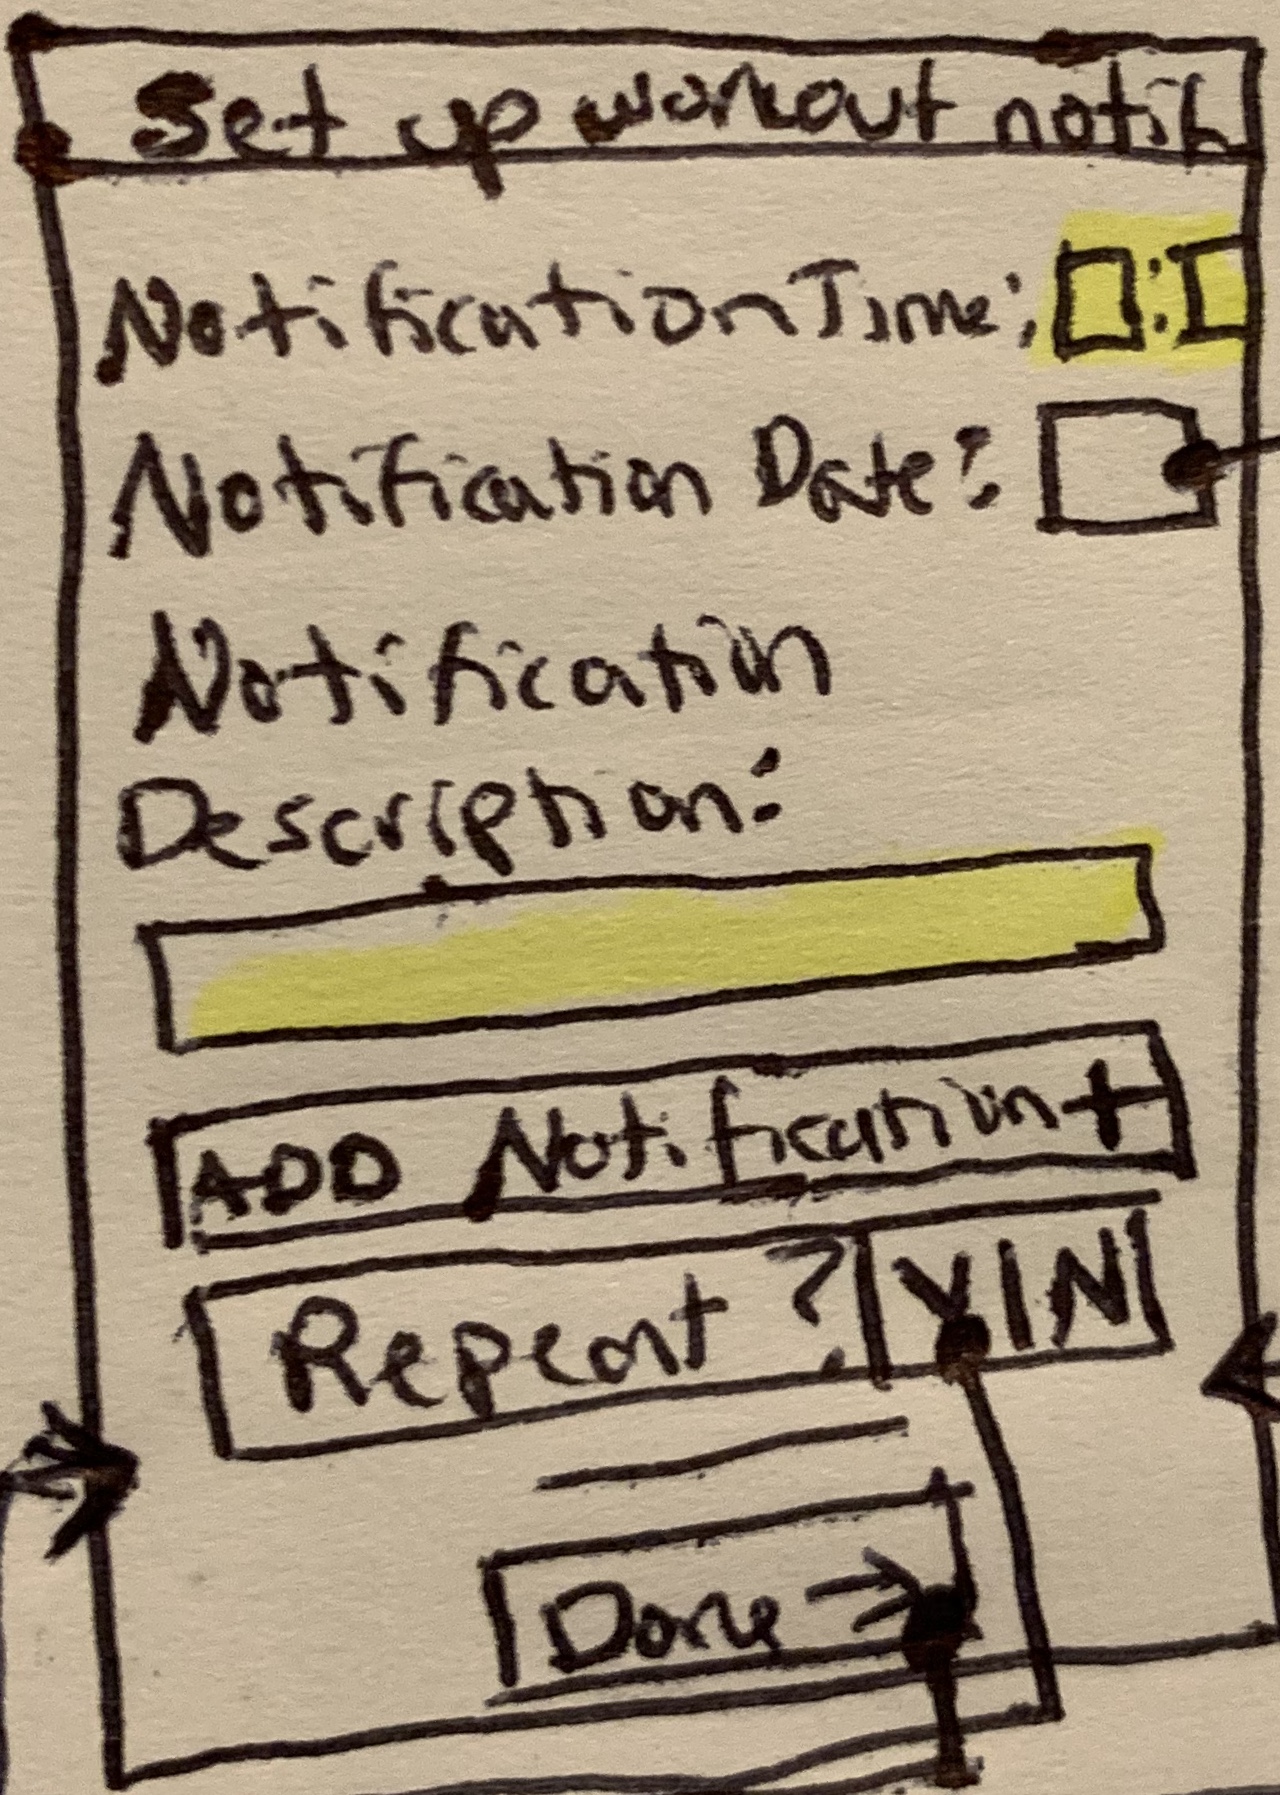 Set up workout notif
Notification Time:
Notification Date:
Notification
Description:
ADD Notification +
Repeat? Y|N
Done →